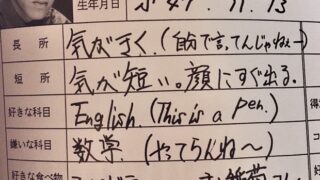 生年月日 S.47. 11. 13
長所 気が多く.(自分で言ってんじゃねぇー)
短所 気が短い。顔にすぐ出る。
好きな科目 English. (This is a pen.)
嫌いな科目 数学. (やってらんね〜)
好きな食べ物